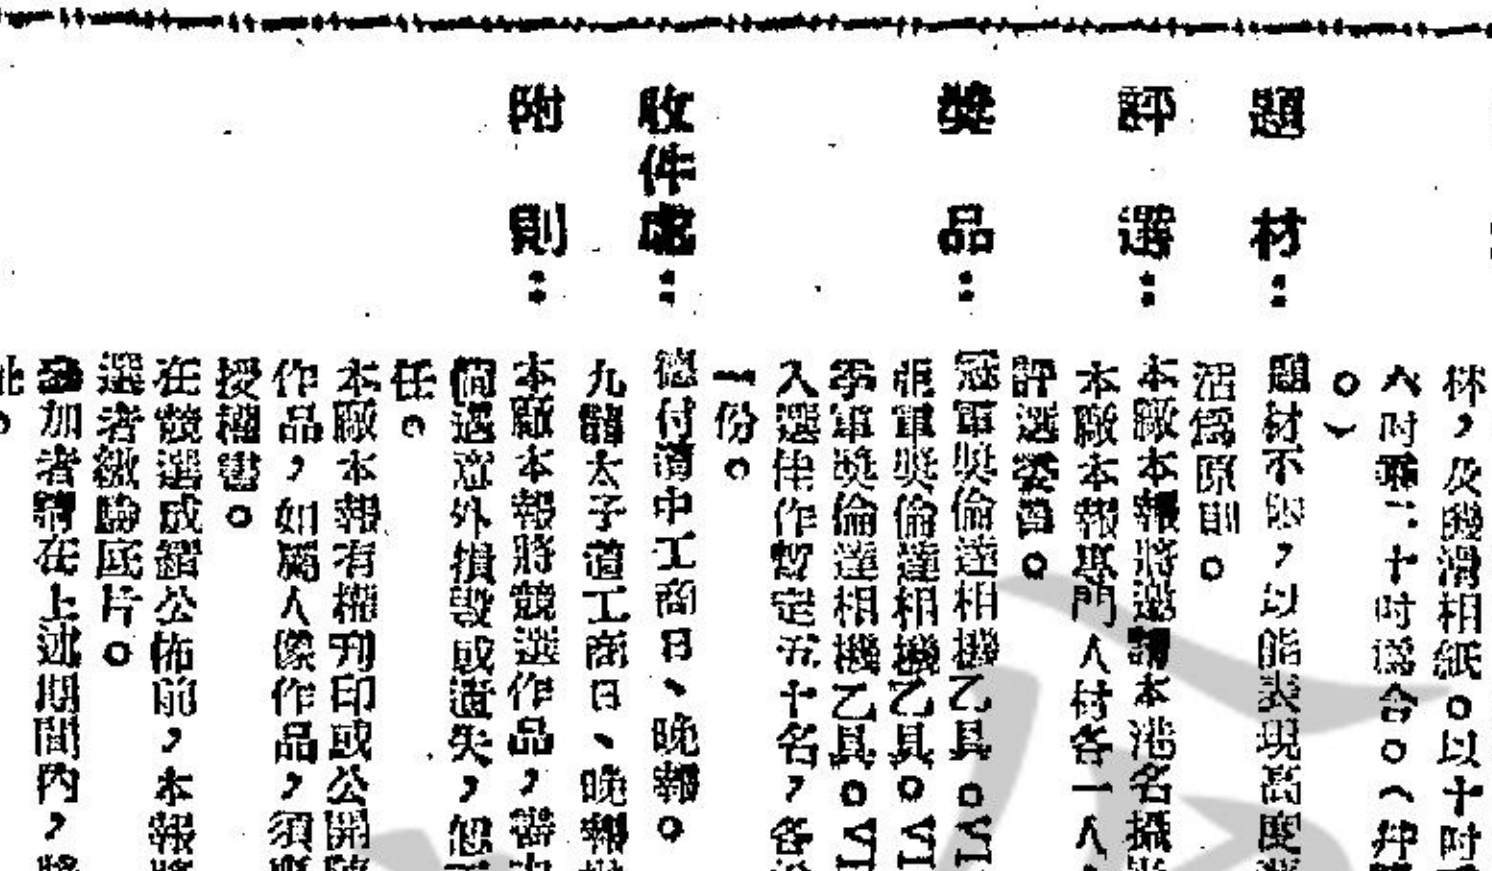 林，及幾滑相紙。以十吋
六吋乘二十吋為合。（件
。）
題材：題材不限，以能表現高度
活為原則。
評選：本廠本報將邀請本港名攝
本廠本報專門人材各一人
評選委員。
獎品：冠軍獎倫達相機乙具。
亞軍獎倫達相機乙具。
季軍獎倫達相機乙具。
入選佳作暫定五十名，各
一份。
收件處：德付道中工商日、晚報。
九龍太子道工商日、晚報
附則：本廠本報將競選作品，
倘遇意外損毀或遺失，恕
任。
本廠本報有權刊印或公開
作品，如屬人像作品，須
授權書。
在競選成績公佈前，本報將
選者繳驗底片。
參加者請在上述期間內，將
此。